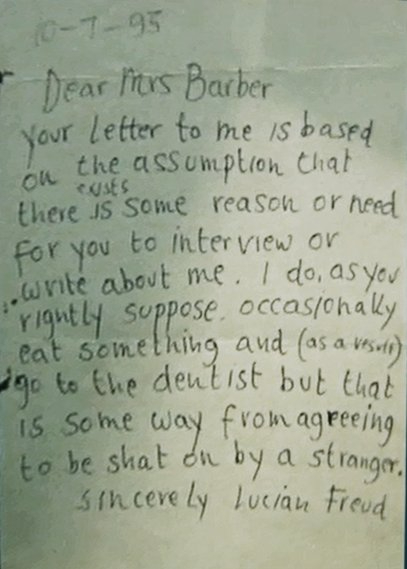 10-7-95
Dear Mrs Barber
your letter to me is based
on the assumption that
exists
there is some reason or need
for you to interview or
write about me. I do, as you
rightly suppose, occasionally
eat something and (as a result)
go to the dentist but that
is some way from agreeing
to be shat on by a stranger.
sincerely Lucian Freud